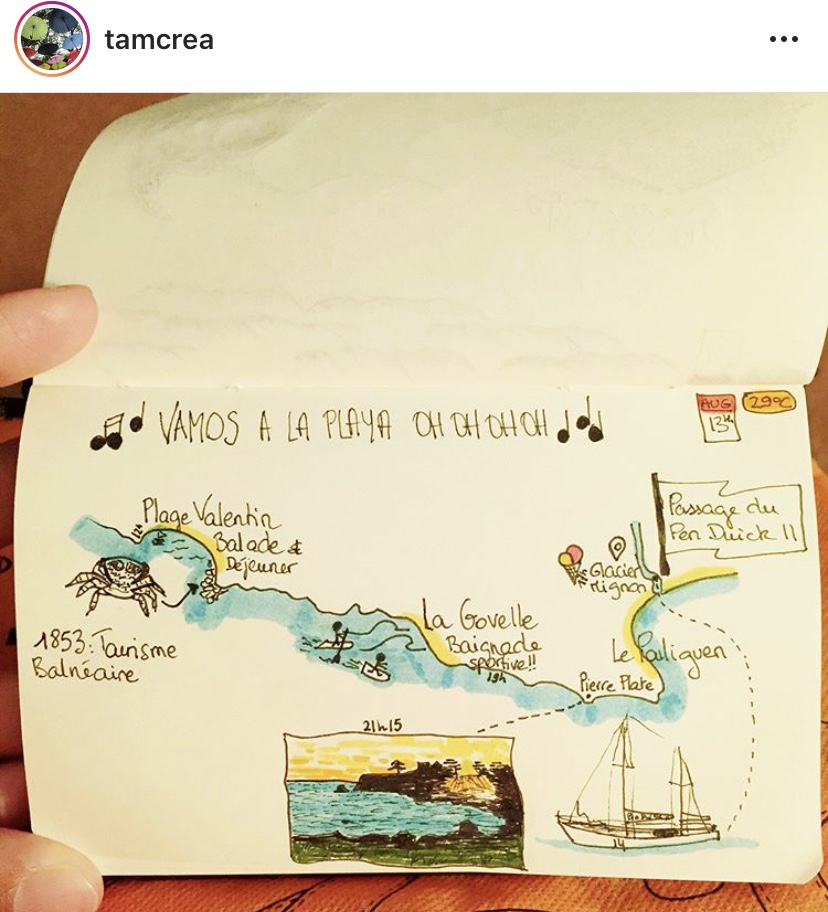 tamcrea
VAMOS A LA PLAYA OH OH OH OH
AUG
13th
29°C
Plage Valentin
Balade &
Déjeuner
12h
1853: Tourisme
Balnéaire
La Govelle
Baignade
sportive!!
19h
Passage du
Pen Duick II
Glacier
Mignon
Le Pouliguen
Pierre Plate
21h15
14